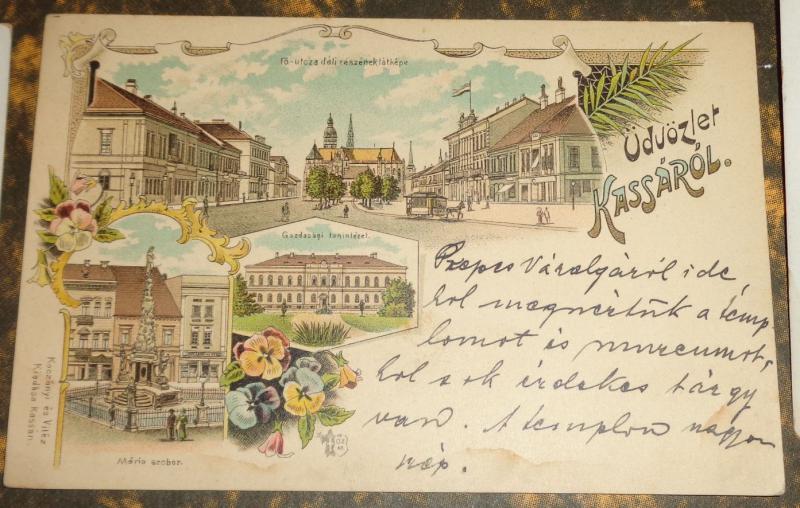 Fő-utcza déli részének látképe
Üdvözlet
KASSÁRÓL.
Gazdasági tanintézet.
Szepes Váralgáról ide,
hol megnéztük a temp
lomot és muzeumot,
hol sok érdekes tárgy
van. A templom nagyon
szép.
Mária szobor.
Koczányi és Vitéz
Kiadása Kassán.